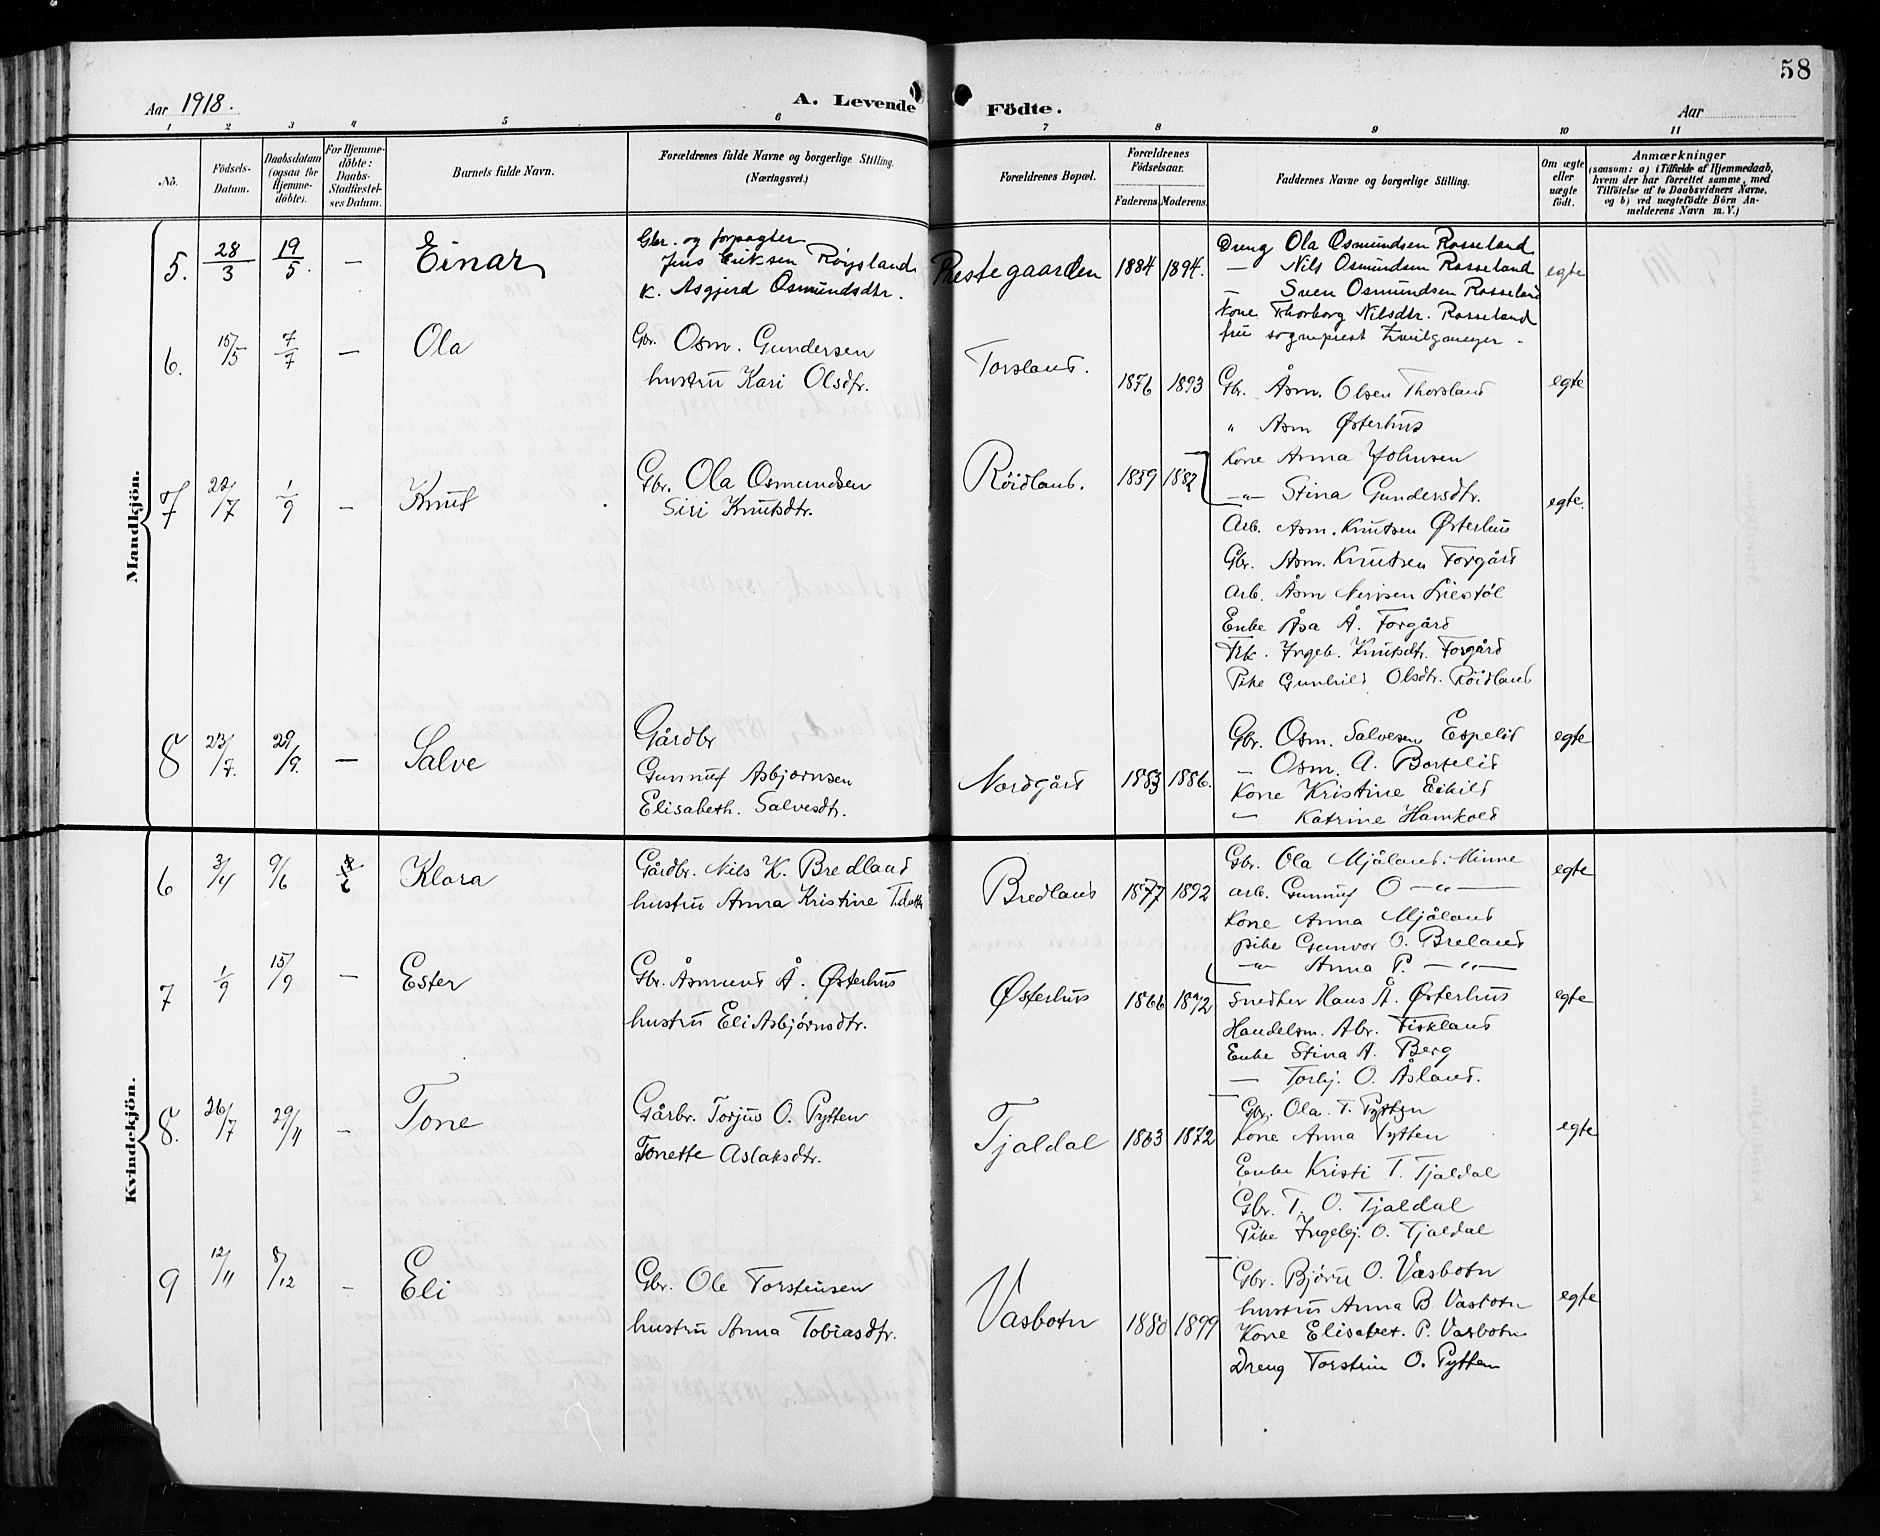 58
Aar 1918.
A. Levende Födte.
Aar
1 2 3 4 5 6 7 8 9 10 11
No.
Födsels-Datum.
Daabsdatum (ogsaa for Hjemme-döbte).
For Hjemme-döbte: Daabs-Stadfæstel-ses Datum.
Barnets fulde Navn.
Forældrenes fulde Navne og borgerlige Stilling. (Næringsvei.)
Forældrenes Bopæl.
Forældrenes Födselsaar.
Faderens. Moderens.
Faddernes Navne og borgerlige Stilling.
Om ægte eller uægte födt.
Anmærkninger
(saasom: a) i Tilfælde af Hjemmedaab, hvem der har forrettet samme, med Tilföielse af to Daabsvidners Navne, og b) ved uægtefödte Börn An-melderens Navn m. V.)
Mandkjön.
5. 28/3 19/5. — Einar
Gbr. og forpagter
Jens Eriksen Røysland
K. Asgjerd Osmundsdtr.
Prestegaarden 1884 1894.
Dreng Ola Osmundsen Rosseland
— Nils Osmundsen Rosseland
— Sven Osmundsen Rosseland
Kone Thorborg Nilsdtr. Rosseland
fru sogneprest
egte
6. 15/5 7/7 — Ola
Gbr. Osm. Gundersen
hustru Kari Olsdtr.
Torsland. 1876 1893
Gbr. Åsm. Olsen Thorsland
" Asm Østerhus
Kone Anna Johnsen
—"— Stina Gundersdtr.
egte
7 22/7 1/9 — Knut
Gbr. Ola Osmundsen
Siri Knutsdtr.
Røidland. 1859 1882
Arb. Asm. Knutsen Østerhus
Gbr. Asm. Knutsen Forgård
Arb. Åsm Nirisen Liestøl
Enke Åsa Å. Forgård
Frk. Ingeb. Knutsdtr. Forgård
Pike Gunhild Olsdtr. Røidland
egte.
8 23/7. 29/9. — Salve
Gårdbr
Gunnuf Asbjørnsen
Elisabeth. Salvesdtr.
Nordgård 1883 1886.
Gbr. Osm. Salvesen Espelid
— Osm. A. Bortelid
Kone Kristine Eikild
— Katrine Hamkold
egte
Kvindekjön.
6 3/4 9/6 Klara
Gårdbr. Nils K. Bredland
hustru Anna Kristine
Bredland 1877 1892
Gbr. Ola Mjåland. Minne
arb. Gunnuf O —"—
Kone Anna Mjåland
pike Gunvor O. Breland
—"— Anna P. —"—
egte
7 1/9 15/9 — Ester
Gbr. Åsmund Å. Østerhus
hustru Eli Asbjørnsdtr.
Østerhus 1866 1872
Snedker Hans Å. Østerhus
Handelsm. Abr. Fiskland
Enke Stina A. Berg
— Torbj. O. Åsland.
egte
8. 26/7 29/11 — Tone
Gårbr. Torjus O. Pytten
Tonette Aslaksdtr.
Tjaldal 1863 1872
Gbr. Ola T. Pytten
Kone Anna Pytten
Enke Kristi T. Tjaldal
Gbr. T. O. Tjaldal
Pike Ingebj. O. Tjaldal
egte
9 12/11 8/12 — Eli
Gbr. Ole Torsteinsen
hustru Anna Tobiasdtr.
Vasbotn 1880 1899
Gbr. Bjørn O. Vasbotn
hustru Anna B. Vasbotn
Kone Elisabet. P. Vasbotn
Dreng Torstein O. Pytten
egte